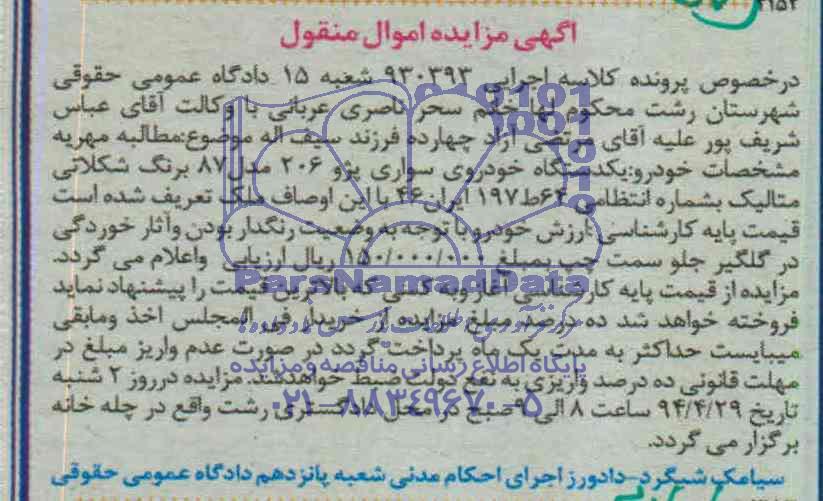 ۲۱۵۲
آگهی مزایده اموال منقول
درخصوص پرونده کلاسه اجرایی ۹۳۰۳۹۳ شعبه ۱۵ دادگاه عمومی حقوقی
شهرستان رشت محکوم لها خانم سحر ناصری عربانی با وکالت آقای عباس
شریف پور علیه آقای مرتضی آزاد چهارده فرزند سیف اله موضوع:مطالبه مهریه
مشخصات خودرو:یکدستگاه خودروی سواری پژو ۲۰۶ مدل۸۷ برنگ شکلاتی
متالیک بشماره انتظامی ۶۴ط۱۹۷ ایران۴۶ با این اوصاف ملک تعریف شده است
قیمت پایه کارشناسی ارزش خودرو با توجه به وضعیت رنگدار بودن وآثار خوردگی
در گلگیر جلو سمت چپ بمبلغ ۱۵۰/۰۰۰/۰۰۰ ریال ارزیابی واعلام می گردد.
مزایده از قیمت پایه کارشناسی آغاز وبه کسی که بالاترین قیمت را پیشنهاد نماید
فروخته خواهد شد ده درصد مبلغ مزایده از خریدار فی المجلس اخذ ومابقی
میبایست حداکثر به مدت یک ماه پرداخت گردد در صورت عدم واریز مبلغ در
مهلت قانونی ده درصد واریزی به نفع دولت ضبط خواهدشد. مزایده درروز ۲ شنبه
تاریخ ۹۴/۴/۲۹ ساعت ۸ الی ۹ صبح در محل دادگستری رشت واقع در چله خانه
برگزار می گردد.
سیامک شبگرد-دادورز اجرای احکام مدنی شعبه پانزدهم دادگاه عمومی حقوقی
ParsNamadData
پایگاه اطلاع رسانی مناقصه و مزایده
۰۲۱-۸۸۳۴۹۶۷۰-۵